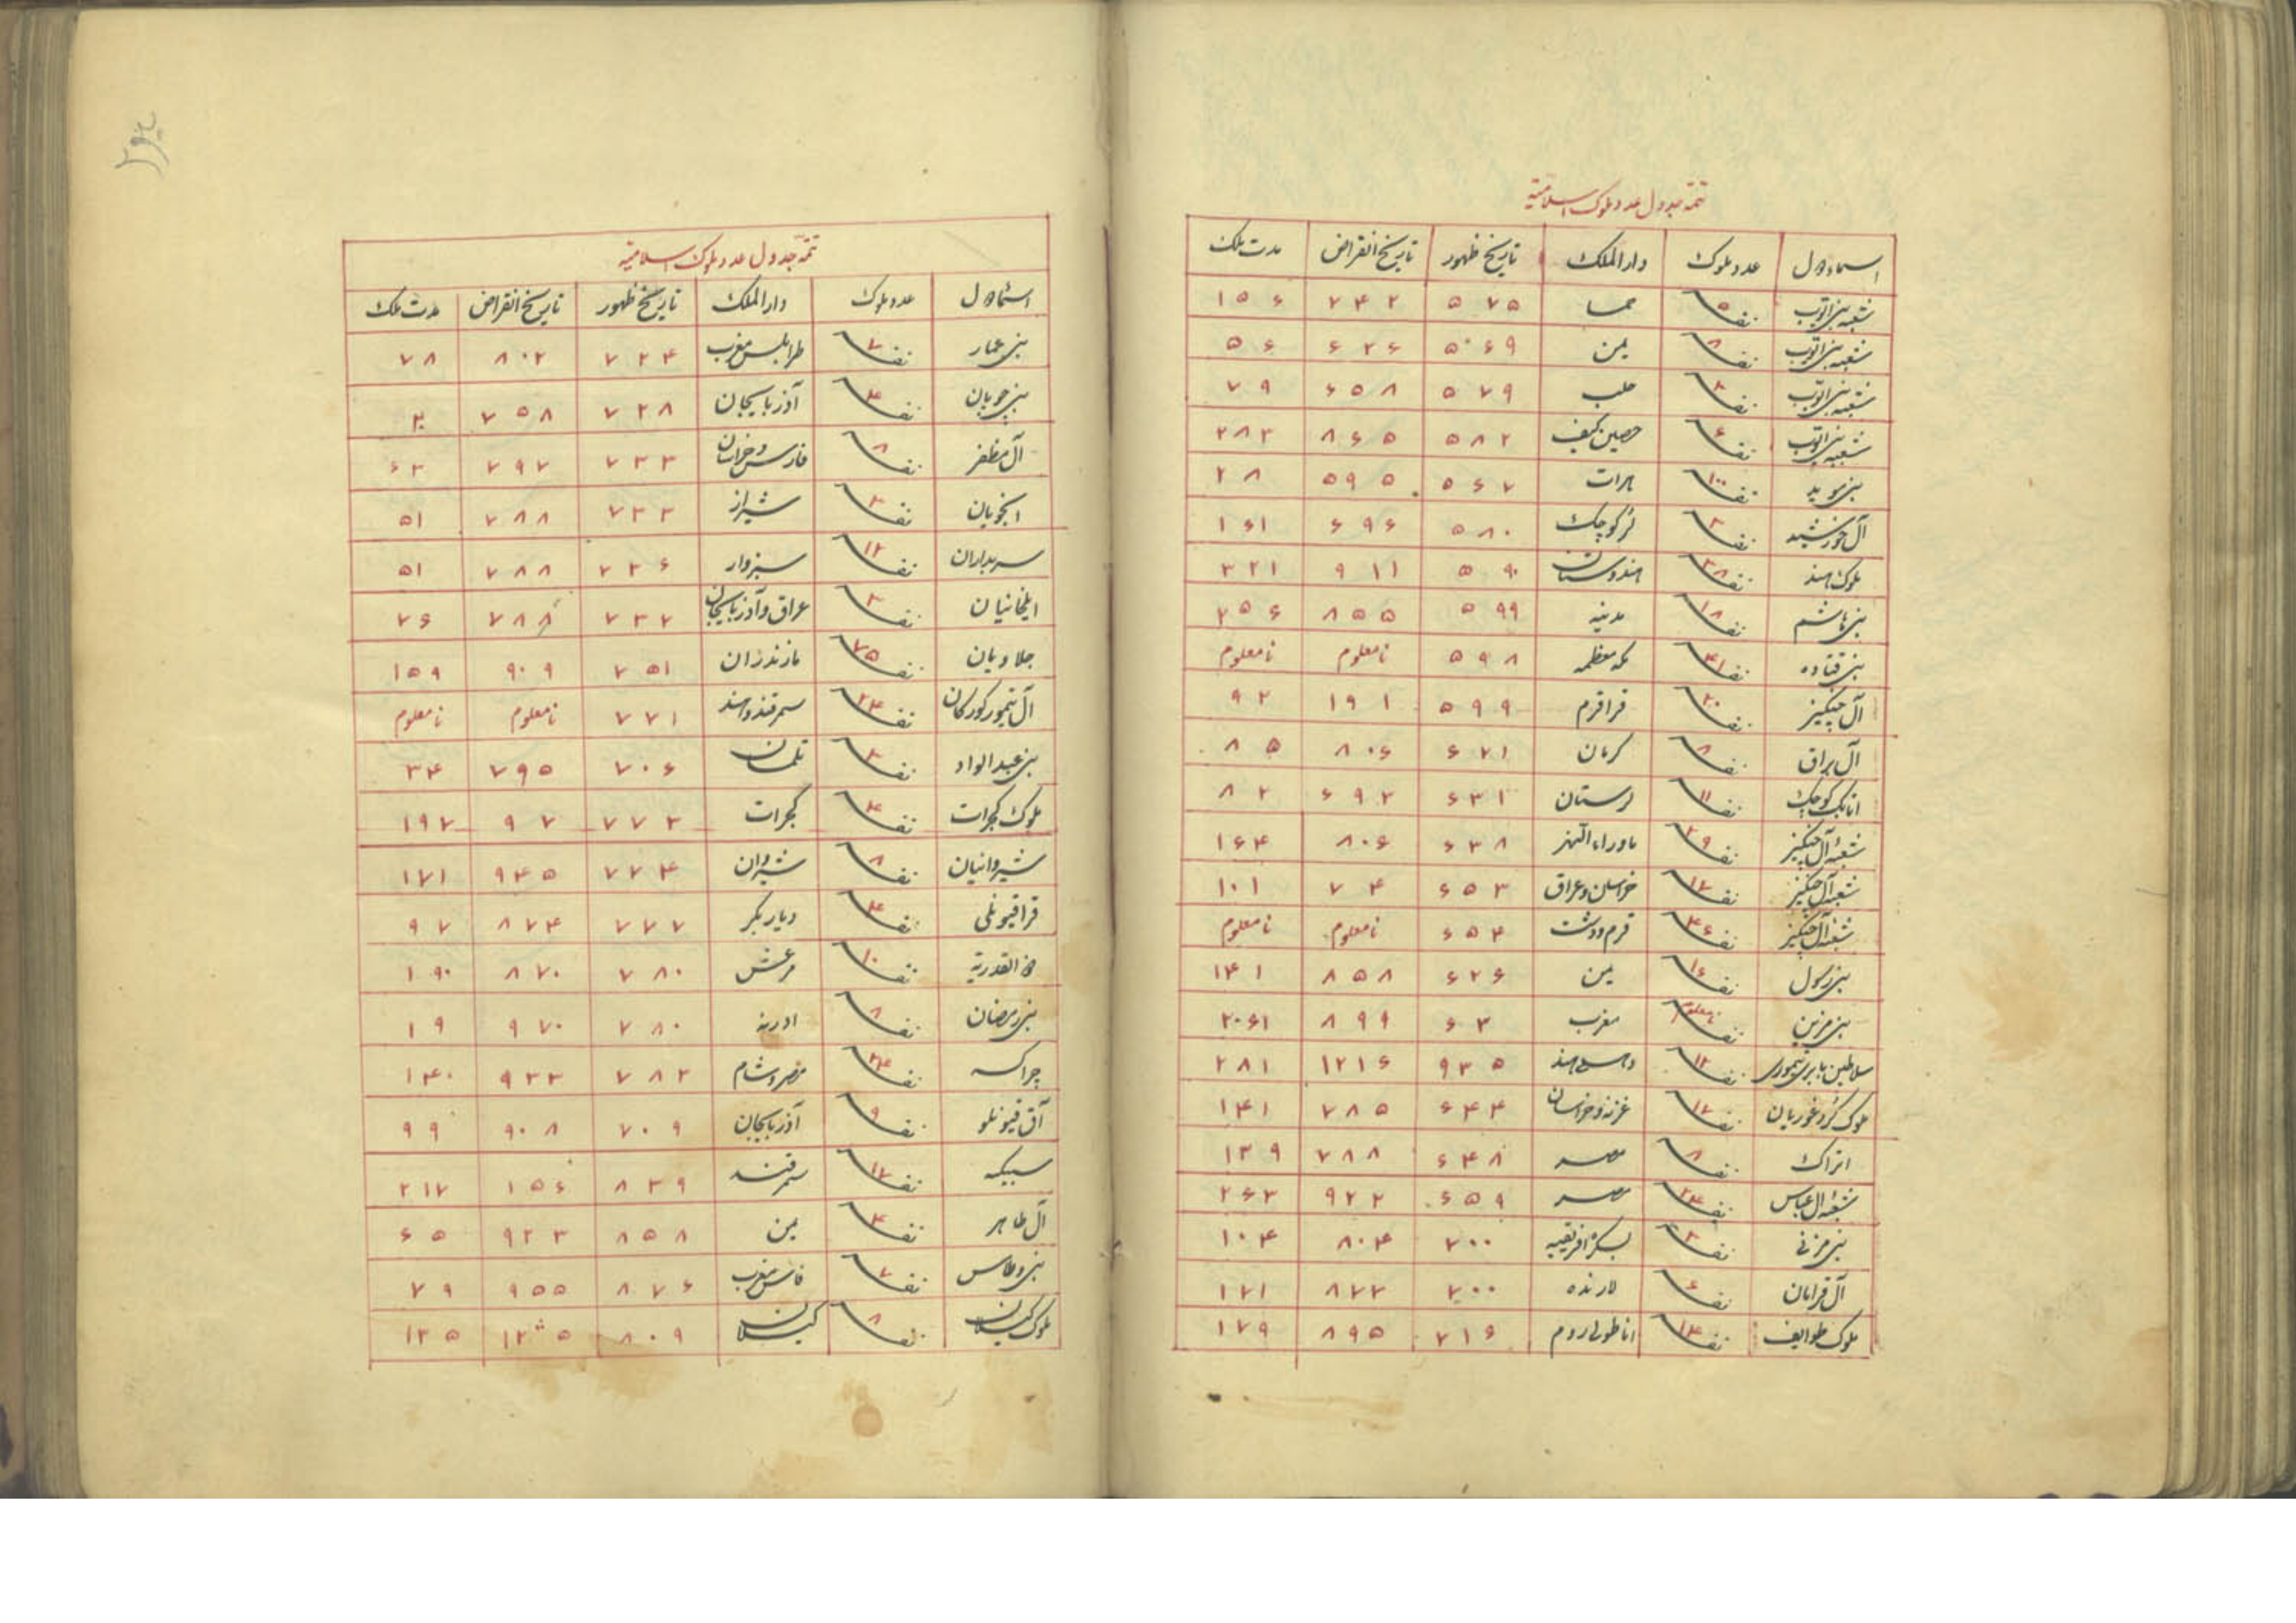 تتمه جدول عدد ملوک اسلامیه
اسماء دول عدد ملوک دار الملک تاریخ ظهور تاریخ انقراض مدت ملک
شعبه بنی ایوب ۵ نفر حما ۵۷۵ ۷۴۲ ۱۵۶
شعبه بنی ایوب ۸ نفر یمن ۵۶۹ ۶۲۶ ۵۶
شعبه بنی ایوب ۳ نفر حلب ۵۷۹ ۶۵۸ ۷۹
شعبه بنی ایوب ۶ نفر حصین کیف ۵۸۲ ۸۶۵ ۲۸۳
بنی موید ۱۰۰ نفر هرات ۵۶۷ ۵۹۵ ۲۸
آل خورشید ۳ نفر لر کوچک ۵۸۰ ۶۹۶ ۱۶۱
ملوک هند ۳۸ نفر هندوستان ۵۹۰ ۹۱۱ ۳۲۱
بنی هاشم ۱۸ نفر مدینه ۵۹۹ ۸۵۵ ۲۵۶
بنی قتاده ۴۱ نفر مکه معظمه ۵۹۸ نامعلوم نامعلوم
آل چنگیز ۲۰ نفر قراقرم ۵۹۹ ۱۹۱ ۹۲
آل براق ۸ نفر کرمان ۶۲۱ ۸۰۶ ۸۵
اتابک کوچک ۱۱ نفر لرستان ۶۳۱ ۶۹۳ ۸۲
شعبه آل چنگیز ۲۹ نفر ماوراء النهر ۶۳۸ ۸۰۶ ۱۶۴
شعبه آل چنگیز ۱۷ نفر خراسان و عراق ۶۵۳ ۷۴ ۱۰۱
شعبه آل چنگیز ۴۶ نفر قرم و دشت ۶۵۴ نامعلوم نامعلوم
بنی رسول ۱۶ نفر یمن ۶۲۶ ۸۵۸ ۱۴۱
بنی مرین نامعلوم نفر مغرب ۶۳ ۸۹۹ ۲۰۶۱
سلاطین بابری تیموری ۱۲ نفر هند ۹۳۵ ۱۲۱۶ ۲۸۱
ملوک کرد غوریان ۱۷ نفر غزنه و خراسان ۶۴۴ ۷۸۵ ۱۴۱
اتراک ۸ نفر مصر ۶۴۸ ۷۸۸ ۱۳۹
شعبه آل عباس ۲۴ نفر مصر ۶۵۹ ۹۲۲ ۲۶۳
بنی مزنی ۳ نفر بسکره افریقیه ۷۰۰ ۸۰۴ ۱۰۴
آل قرامان ۶ نفر لارنده ۷۰۰ ۸۷۲ ۱۷۱
ملوک طوایف ۱۴ نفر اناطولی روم ۷۱۶ ۸۹۵ ۱۷۹
تتمه جدول عدد ملوک اسلامیه
اسماء دول عدد ملوک دار الملک تاریخ ظهور تاریخ انقراض مدت ملک
بنی عمار ۷ نفر طرابلس مغرب ۷۲۴ ۸۰۲ ۷۸
بنی چوپان ۴ نفر آذربایجان ۷۲۸ ۷۵۸ ۳۰
آل مظفر ۸ نفر فارس و خراسان ۷۳۳ ۷۹۷ ۶۳
انجویان ۳ نفر شیراز ۷۳۳ ۷۸۸ ۵۱
سربداران ۱۲ نفر سبزوار ۷۳۶ ۷۸۸ ۵۱
ایلخانیان ۳ نفر عراق و آذربایجان ۷۳۷ ۷۸۸ ۷۶
جلاویان ۷۵ نفر مازندران ۷۵۱ ۹۰۹ ۱۵۹
آل تیمور کورکان ۲۴ نفر سمرقند و هند ۷۷۱ نامعلوم نامعلوم
بنی عبد الواد ۳ نفر تلمسان ۷۰۶ ۷۹۵ ۳۴
ملوک کجرات ۴ نفر کجرات ۷۷۳ ۹۷ ۱۹۷
شیروانیان ۸ نفر شیروان ۷۷۴ ۹۴۵ ۱۷۱
قراقیونلی ۴ نفر دیار بکر ۷۷۷ ۸۷۴ ۹۷
ذو القدریه ۱۰ نفر مرعش ۷۸۰ ۸۷۰ ۱۹۰
بنی رمضان ۸ نفر ادرنه ۷۸۰ ۹۷۰ ۱۹
چراکسه ۲۴ نفر مصر و شام ۷۸۳ ۹۲۳ ۱۴۰
آق قیونلو ۹ نفر آذربایجان ۷۰۹ ۹۰۸ ۹۹
سمرقند ۸۳۹ ۱۵۶ ۲۱۷
آل طاهر ۴ نفر یمن ۸۵۸ ۹۲۳ ۶۵
بنی وطاس ۷ نفر فاس مغرب ۸۷۶ ۹۵۵ ۷۹
ملوک کیلان ۸ نفر کیلان ۸۰۹ ۱۲۰۵ ۱۲۵